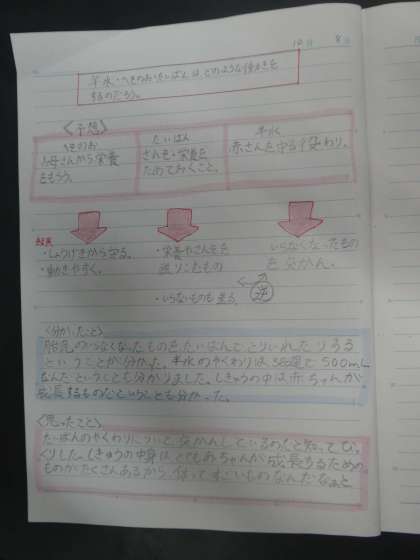 10月 8日
羊水・へそのお・たいばんは、どのような働きを
するのだろう。
〈予想〉
へそのお
お母さんから栄養
をもらう。
たいばん
さんそ・栄養を
ためておくこと。
羊水
赤さんを守る役わり。
結果
・しょうげきから守る。
・動きやすく。
・栄養やさんそを
送りこむもの
・いらないものも送る
いらなくなったもの
を交かん。
逆
〈分かったこと〉
胎児のいらなくなったものをたいばんでとりいれたりする
ということが分かった。羊水のやくわりは36週で500mL
なんだということも分かりました。しきゅうの中は赤ちゃんが
成長するものだということも分かった。
〈思ったこと〉
たいばんのやくわりについて交かんしているのだと知ってび
くりした。しきゅうの中身はとてもあちゃんが成長するための
ものがたくさんあるから、体ってすごいものなんだなぁと。